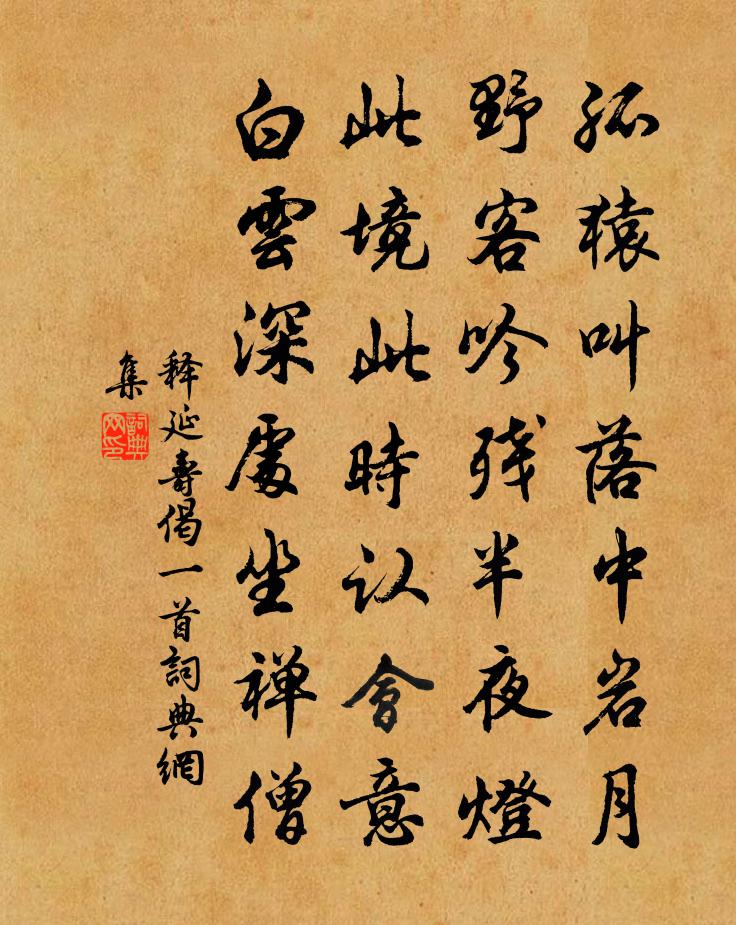 孤猿叫落中岩月
野客吟残半夜燈
此境此時认會意
白雲深處坐禅僧
释延壽偈一首詞典網
集
詞典网印